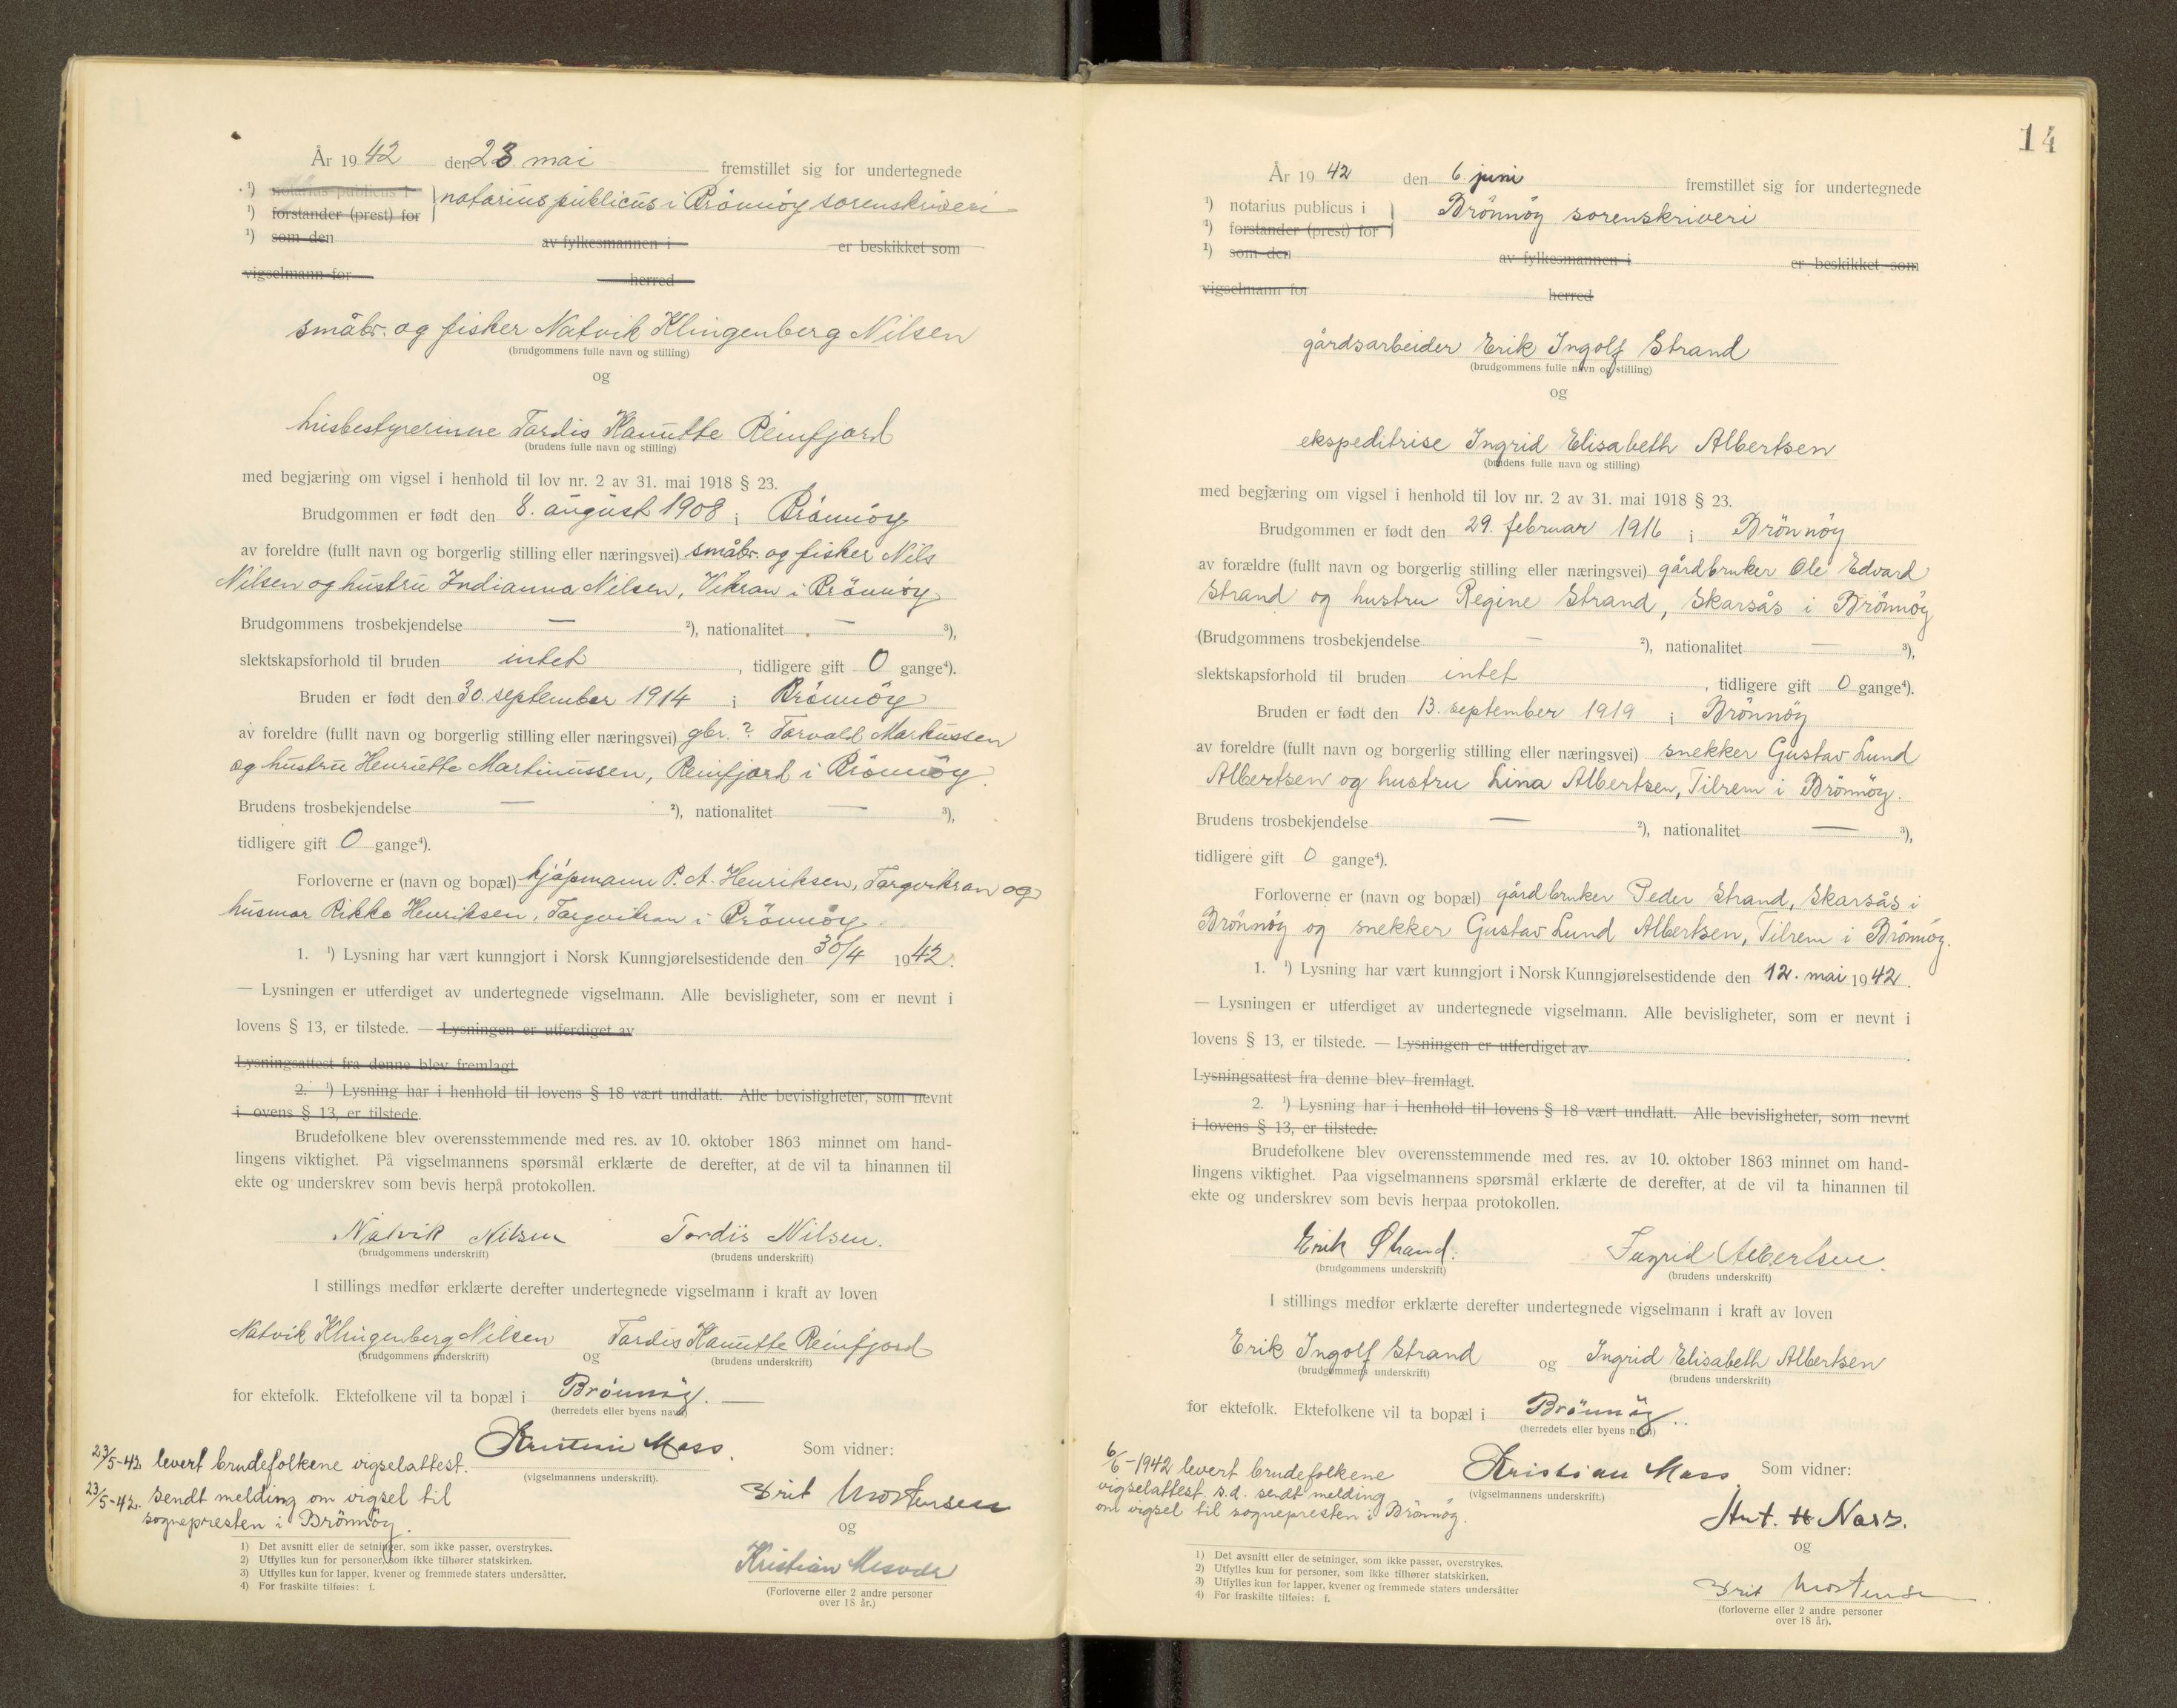 År 1942 den 23. mai fremstillet sig for undertegnede
¹) notarius publicus i
notarius publicus i Brönnöy sorenskriveri
¹) forstander (prest) for
¹) som den av fylkesmannen i er beskikket som
vigselmann for herred
småbr. og fisker Natvik Klingenberg Nilsen
(brudgommens fulle navn og stilling)
og
husbestyrerinne Tordis Hanutte Reinfjord
(brudens fulle navn og stilling)
med begjæring om vigsel i henhold til lov nr. 2 av 31. mai 1918 § 23.
Brudgommen er født den 8. august 1908 i Brönnöy
av foreldre (fullt navn og borgerlig stilling eller næringsvei) småbr. og fisker Nils
Nilsen og hustru Indianna Nilsen, Vikran i Brönnöy
Brudgommens trosbekjendelse — ²), nationalitet — ³),
slektskapsforhold til bruden intet, tidligere gift 0 gange⁴).
Bruden er født den 30. september 1914 i Brönnöy
av foreldre (fullt navn og borgerlig stilling eller næringsvei) gbr. ? Torvald Markussen
og hustru Henriette Martinussen, Reinfjord i Brönnöy.
Brudens trosbekjendelse — ²), nationalitet — ³),
tidligere gift 0 gange⁴).
Forloverne er (navn og bopæl) kjöpmann P. A. Henriksen, Torgvikran og
husmor Rikka Henriksen, Torgvikran i Brönnöy.
1. ¹) Lysning har vært kunngjort i Norsk Kunngjørelsestidende den 30/4 1942.
— Lysningen er utferdiget av undertegnede vigselmann. Alle bevisligheter, som er nevnt i
lovens § 13, er tilstede. — Lysningen er utferdiget av
Lysningsattest fra denne blev fremlagt
2. ¹) Lysning har i henhold til lovens § 18 vært undlatt. Alle bevisligheter, som nevnt
i ovens § 13, er tilstede.
Brudefolkene blev overensstemmende med res. av 10. oktober 1863 minnet om hand-
lingens viktighet. På vigselmannens spørsmål erklærte de derefter, at de vil ta hinannen til
ekte og underskrev som bevis herpå protokollen.
Natvik Nilsen Tordis Nilsen.
(brudgommens underskrift) (brudens underskrift)
I stillings medfør erklærte derefter undertegnede vigselmann i kraft av loven
Natvik Klingenberg Nilsen og Tordis Hanutte Reinfjord
(brudgommens underskrift) (brudens underskrift)
for ektefolk. Ektefolkene vil ta bopæl i Brönnöy. —
(herredets eller byens navn)
Kristian Moss. Som vidner:
(vigselmannens underskrift).
23/5-42 levert brudefolkene vigselattest.
23/5-42. sendt melding om vigsel til
sognepresten i Brönnöy.
Brit Mortensen
og
Kristian
(Forloverne eller 2 andre personer
over 18 år.)
1) Det avsnitt eller de setninger, som ikke passer, overstrykes.
2) Utfylles kun for personer, som ikke tilhører statskirken.
3) Utfylles kun for lapper, kvener og fremmede staters undersåtter.
4) For fraskilte tilføies: f.
14
År 1942 den 6. juni fremstillet sig for undertegnede
¹) notarius publicus i Brönnöy sorenskriveri
¹) forstander (prest) for
¹) som den av fylkesmannen i er beskikket som
vigselmann for herred
gårdsarbeider Erik Ingolf Strand
(brudgommens fulle navn og stilling)
og
ekspeditrise Ingrid Elisabeth Albertsen
(brudens fulle navn og stilling)
med begjæring om vigsel i henhold til lov nr. 2 av 31. mai 1918 § 23.
Brudgommen er født den 29. februar 1916 i Brönnöy
av forældre (fullt navn og borgerlig stilling eller næringsvei) gårdbruker Ole Edvard
Strand og hustru Regine Strand, Skarsås i Brönnöy
(Brudgommens trosbekjendelse — ²), nationalitet — ³),
slektskapsforhold til bruden intet, tidligere gift 0 gange⁴).
Bruden er født den 13. september 1919 i Brönnöy
av foreldre (fullt navn og borgerlig stilling eller næringsvei) snekker Gustav Lund
Albertsen og hustru Lina Albertsen, Tilrem i Brönnöy.
Brudens trosbekjendelse — ²), nationalitet — ³),
tidligere gift 0 gange⁴).
Forloverne er (navn og bopæl) gårdbruker Peder Strand, Skarsås i
Brönnöy og snekker Gustav Lund Albertsen, Tilrem i Brönnöy.
1. ¹) Lysning har vært kunngjort i Norsk Kunngjørelsestidende den 12. mai 1942.
— Lysningen er utferdiget av undertegnede vigselmann. Alle bevisligheter, som er nevnt i
lovens § 13, er tilstede. — Lysningen er utferdiget av
Lysningsattest fra denne blev fremlagt.
2. ¹) Lysning har i henhold til lovens § 18 vært undlatt. Alle bevisligheter, som nevnt
i lovens § 13, er tilstede.
Brudefolkene blev overensstemmende med res. av 10. oktober 1863 minnet om hand-
lingens viktighet. Paa vigselmannens spørsmål erklærte de derefter, at de vil ta hinannen til
ekte og underskrev som bevis herpaa protokollen.
Erik Strand. Ingrid Albertsen.
(brudgommens underskrift) (brudens underskrift)
I stillings medfør erklærte derefter undertegnede vigselmann i kraft av loven
Erik Ingolf Strand og Ingrid Elisabeth Albertsen
(brudgommens underskrift) (brudens underskrift)
for ektefolk. Ektefolkene vil ta bopæl i Brönnöy.
(herredets eller byens navn)
Kristian Moss Som vidner:
(vigselmannens underskrift.)
6/6-1942 levert brudefolkene
vigselattest. s.d. sendt melding
om vigsel til sognepresten i Brönnöy.
Ant. H Næss.
og
Brit Mortensen
(forloverne eller 2 andre personer
over 18 år).
1) Det avsnitt eller de setninger, som ikke passer, overstrykes.
2) Utfylles kun for personer, som ikke tilhører statskirken.
3) Utfylles kun for lapper, kvener og fremmede staters undersåtter
4) For fraskilte tilføies: f.